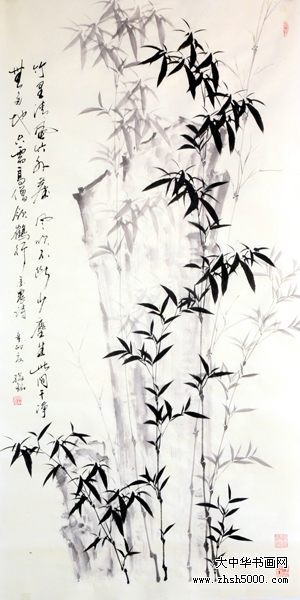 竹里清風竹外塵風吹不斷少塵生此間干净
無多地只高僧鶴行
大中华书画网
www.zhsh5000.com